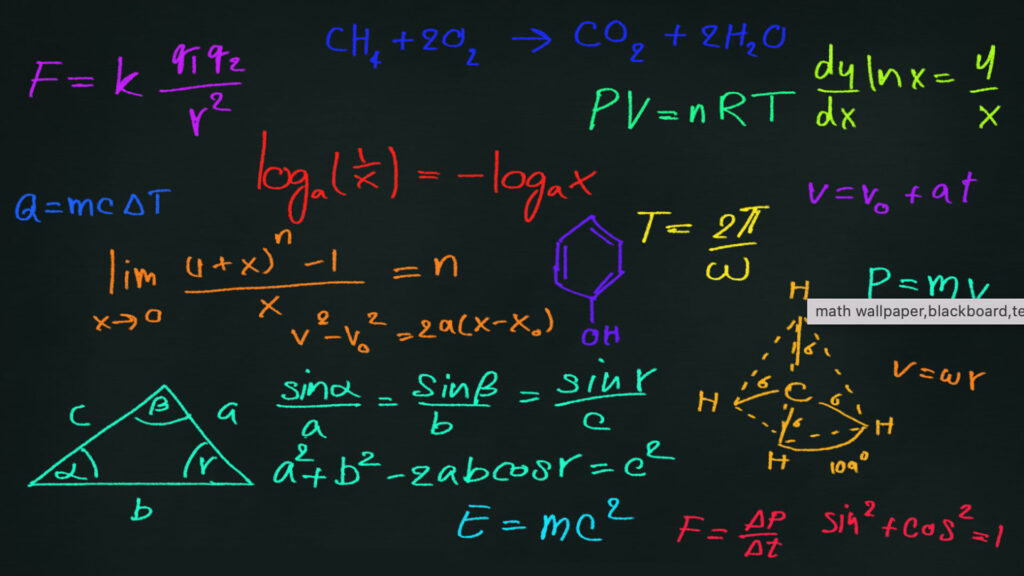 CH₄ + 2O₂ → CO₂ + 2H₂O
F = k q₁q₂/r²
dy/dx ln x = y/x
PV = nRT
logₐ(1/x) = -logₐx
Q = mcΔT
v = v₀ + at
T = 2π/ω
lim x→0 ((1+x)ⁿ - 1)/x = n
P = mv
math wallpaper,blackboard,te
v² - v₀² = 2a(x - x₀)
OH
H
σ
v = ωr
H σ C σ H
σ
H 109°
c β a
α r
b
sinα/a = sinβ/b = sin r/c
a² + b² - 2abcos r = c²
E = mc²
F = ΔP/Δt
sin² + cos² = 1